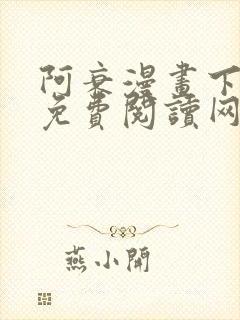 阿衰漫畫下
免費閱讀网
燕小開